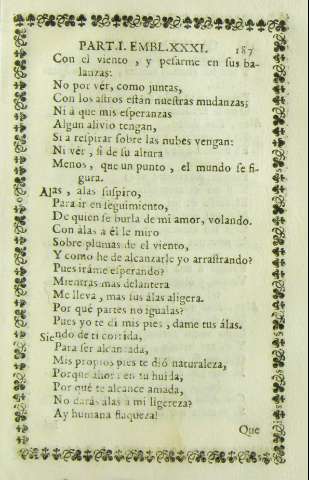 PART. I. EMBL. XXXI. 187
Con el viento, y pesarme en sus ba-
lanzas:
No por vér, como juntas,
Con los astros están nuestras mudanzas;
Ni à que mis esperanzas
Algun alivio tengan,
Si a respirar sobre las nubes vengan:
Ni vér, si de su altura
Menos, que un punto, el mundo se fi-
gura.
Alas, alas suspiro,
Para ir en seguimiento,
De quien se burla de mi amor, volando.
Con álas a él le miro
Sobre plumas de el viento,
Y como he de alcanzarle yo arrastrando?
Pues iráme esperando?
Mientras mas delantera
Me lleva, mas sus álas aligera.
Por qué partes no igualas?
Pues yo te di mis pies, dame tus álas.
Siendo de ti corrida,
Para ser alcanzada,
Mis propios pies te dió naturaleza,
Porque ahora en tu huida,
Por qué te alcance amada,
No darás álas à mi ligereza?
Ay humana flaqueza!
Que